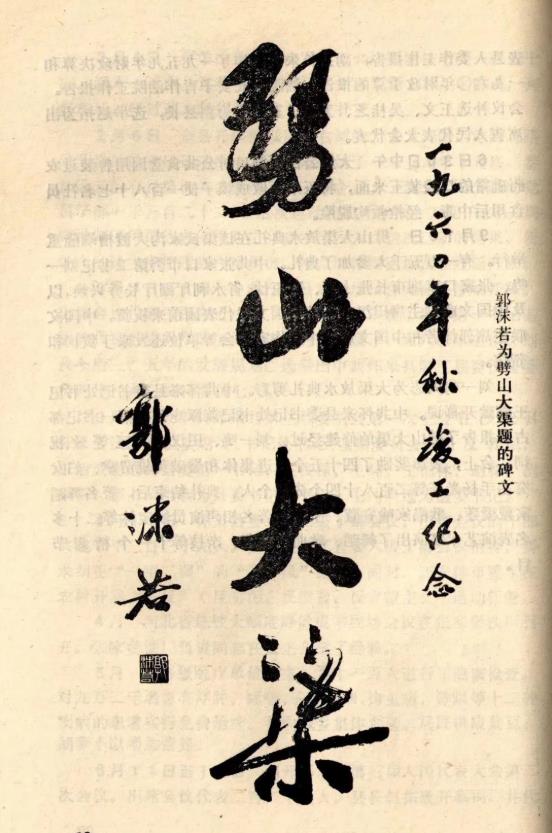 郭沫若为劈山大渠题的碑文
一九六〇年秋竣工纪念
劈山大渠
郭沫若